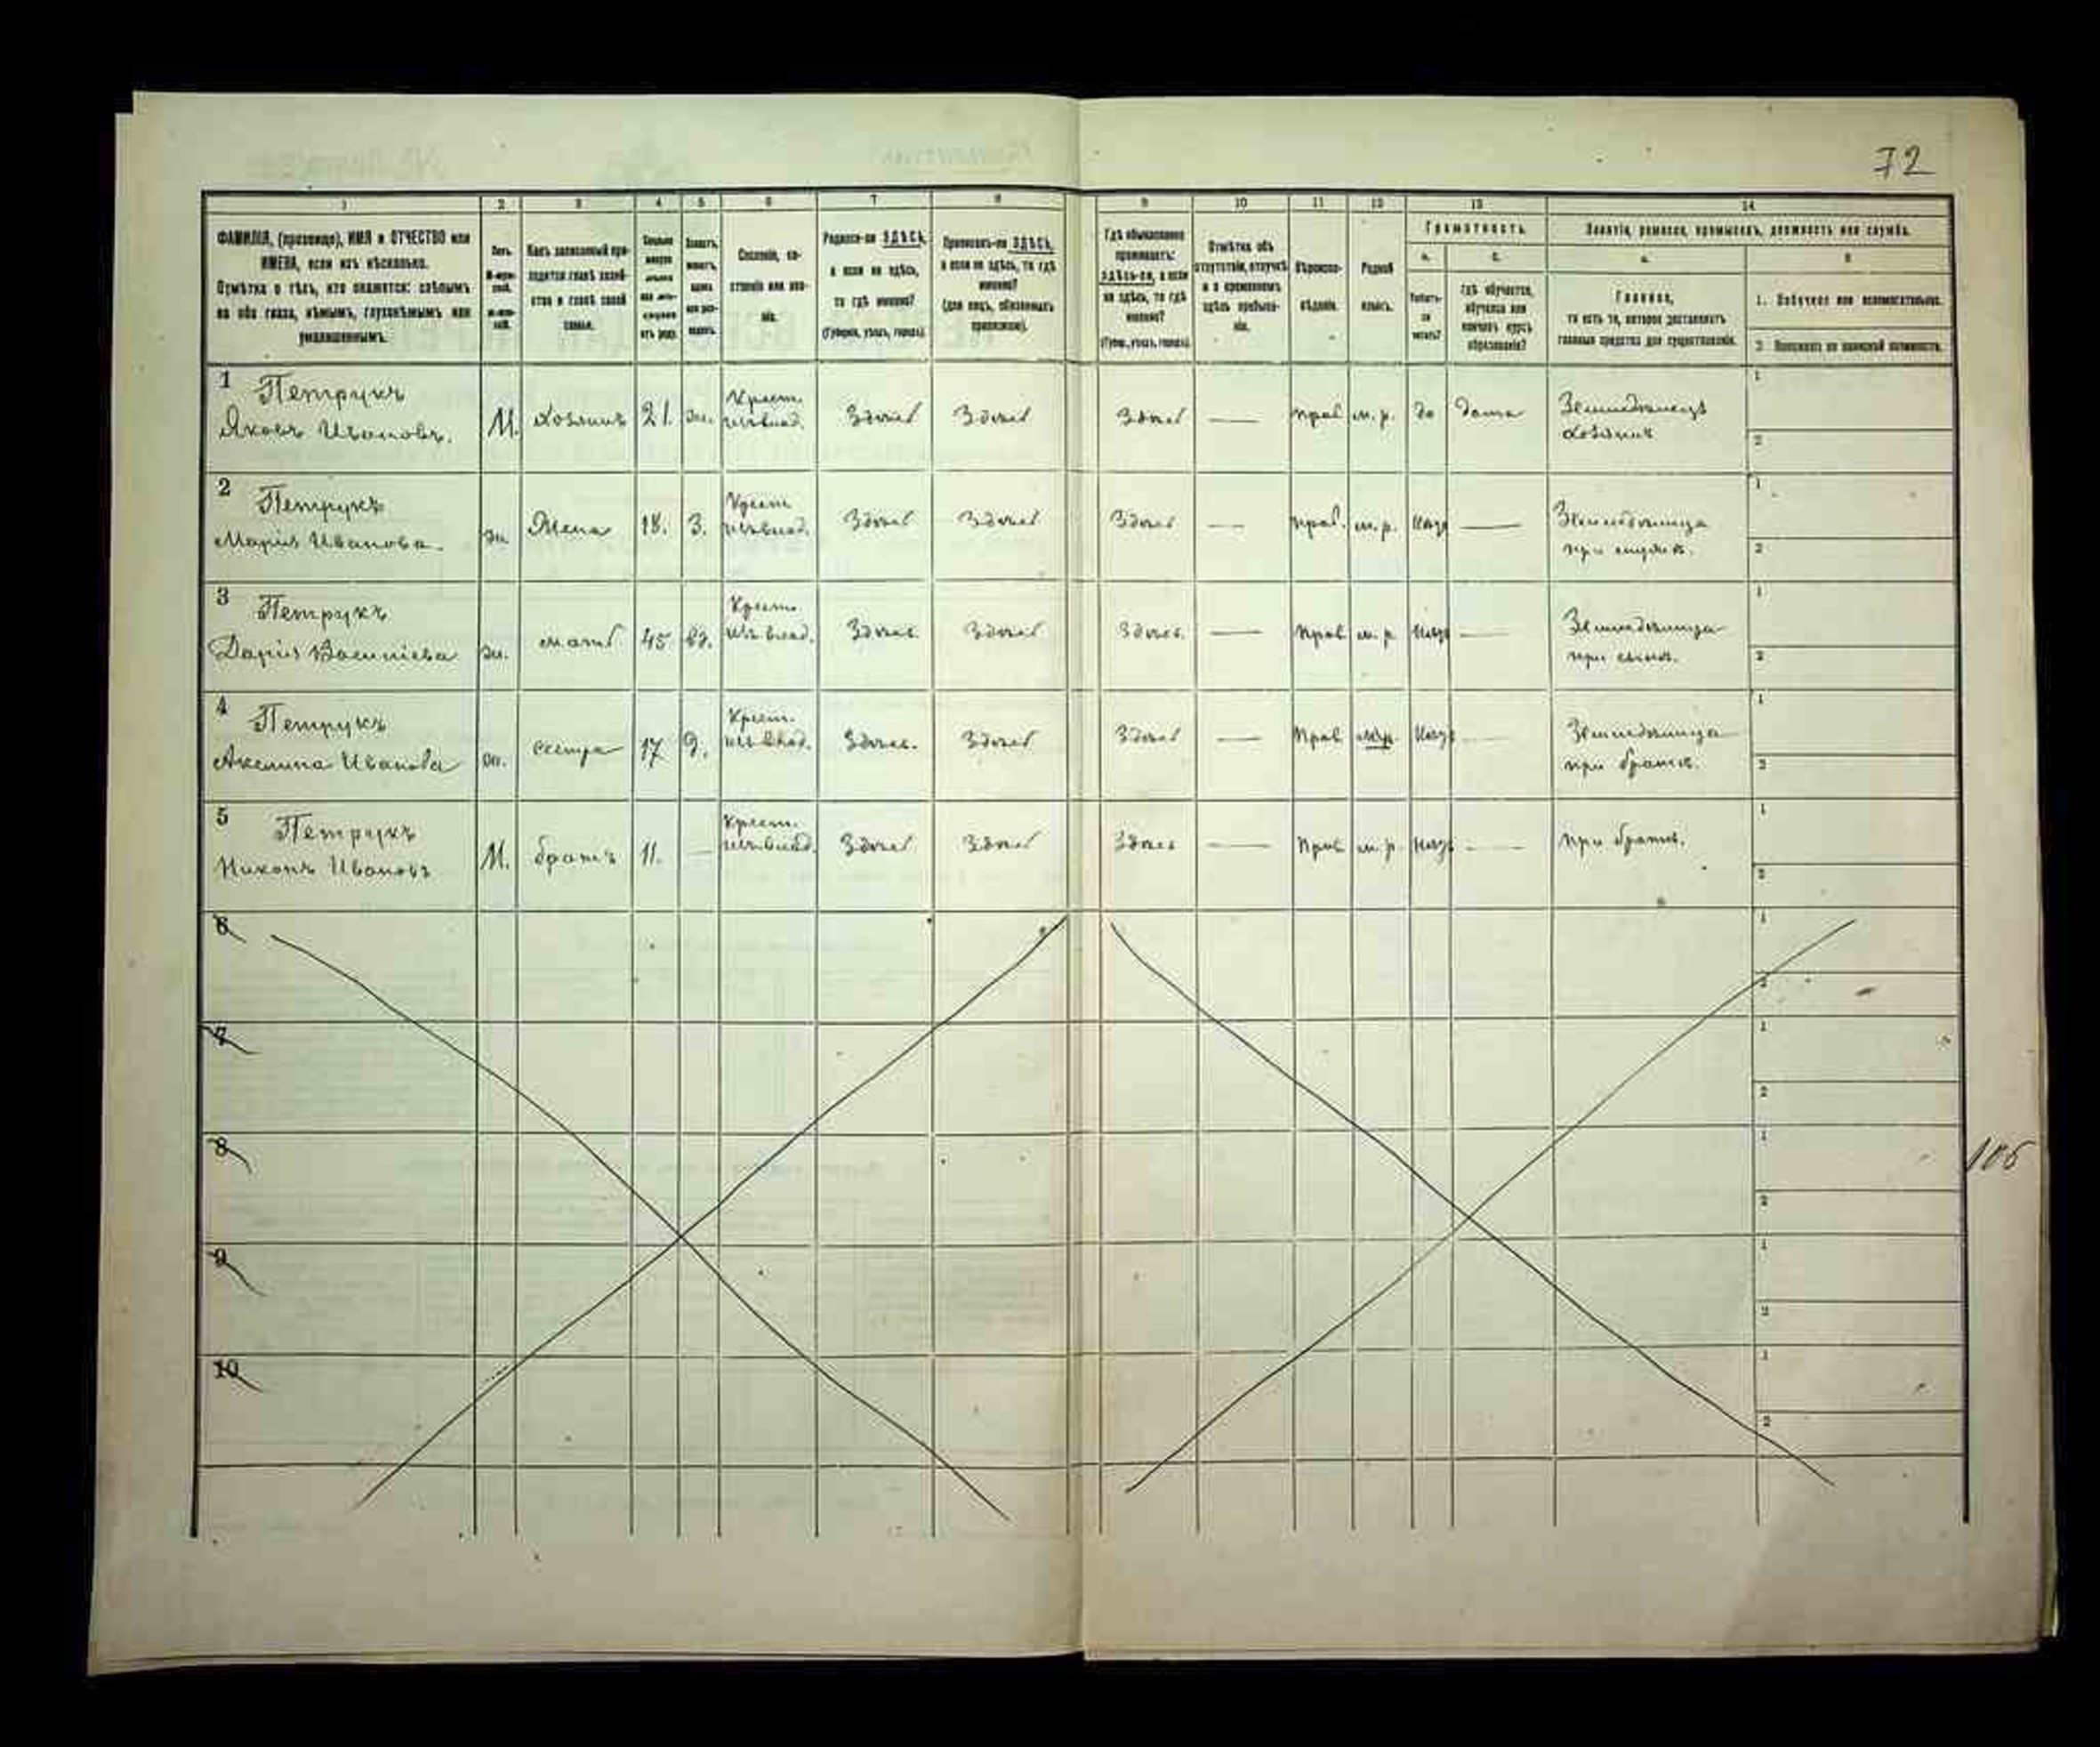 72
1
2
3
4
5
6
7
8
9
10
11
12
13
14
ФАМИЛІЯ, (прозвище), ИМЯ и ОТЧЕСТВО или
ИМЕНА, если ихъ нѣсколько.
Отмѣтка о тѣхъ, кто окажется: слѣпымъ
на оба глаза, нѣмымъ, глухонѣмымъ или
умалишеннымъ.
Полъ.
Какъ записанный при-
ходится главѣ хозяй-
ства и главѣ своей
семьи.
Сословіе, со-
стояніе или зва-
ніе.
Родился-ли ЗДѢСЬ,
а если не здѣсь,
то гдѣ именно?
(Губернія, уѣздъ, городъ).
Приписанъ-ли ЗДѢСЬ,
а если не здѣсь, то гдѣ
именно?
(для лицъ, обязанныхъ
припискою).
Гдѣ обыкновенно
проживаетъ:
здѣсь-ли, а если
не здѣсь, то гдѣ
именно?
(Губер., уѣздъ, городъ).
Отмѣтка объ
отсутствіи, отлучкѣ
и о временномъ
здѣсь пребыва-
ніи.
Вѣроиспо-
вѣданіе.
Родной
языкъ.
Грамотность.
а.
б.
Умѣетъ-
ли
читать?
Гдѣ обучается,
обучался или
кончилъ курсъ
образованія?
Занятіе, ремесло, промыселъ, должность или служба.
а.
б.
Главное,
то есть то, которое доставляетъ
главныя средства для существованія.
1. Побочное или вспомогательное.
2. Положеніе по воинской повинности.
1 Петрукъ
Яковъ Ивановъ. М. хозяинъ 21. ж. Крест. изъ влад. Здѣсь Здѣсь Здѣсь — прав м. р. да дома Земледѣлецъ
хозяинъ
1
2
2 Петрукъ
Марія Иванова. ж. Жена 18. З. Крест. изъ влад. Здѣсь Здѣсь Здѣсь — прав. м. р. —
при мужѣ.
1
2
3 Петрукъ
Дарія Василіева ж. мать 45 вд. Крест. изъ влад. Здѣсь Здѣсь Здѣсь — прав м. р. —
при сынѣ.
1
2
4 Петрукъ
Акелина Иванова ж. сестра 17 д. Крест. изъ влад. Здѣсь Здѣсь Здѣсь — прав м.р. —
при братѣ.
1
2
5 Петрукъ
Никонъ Ивановъ М. братъ 11. — Крест. изъ влад. Здѣсь Здѣсь Здѣсь — прав м. р. — при братѣ.
1
2
6
1
2
7
1
2
8
1
2
106
9
1
2
10
1
2